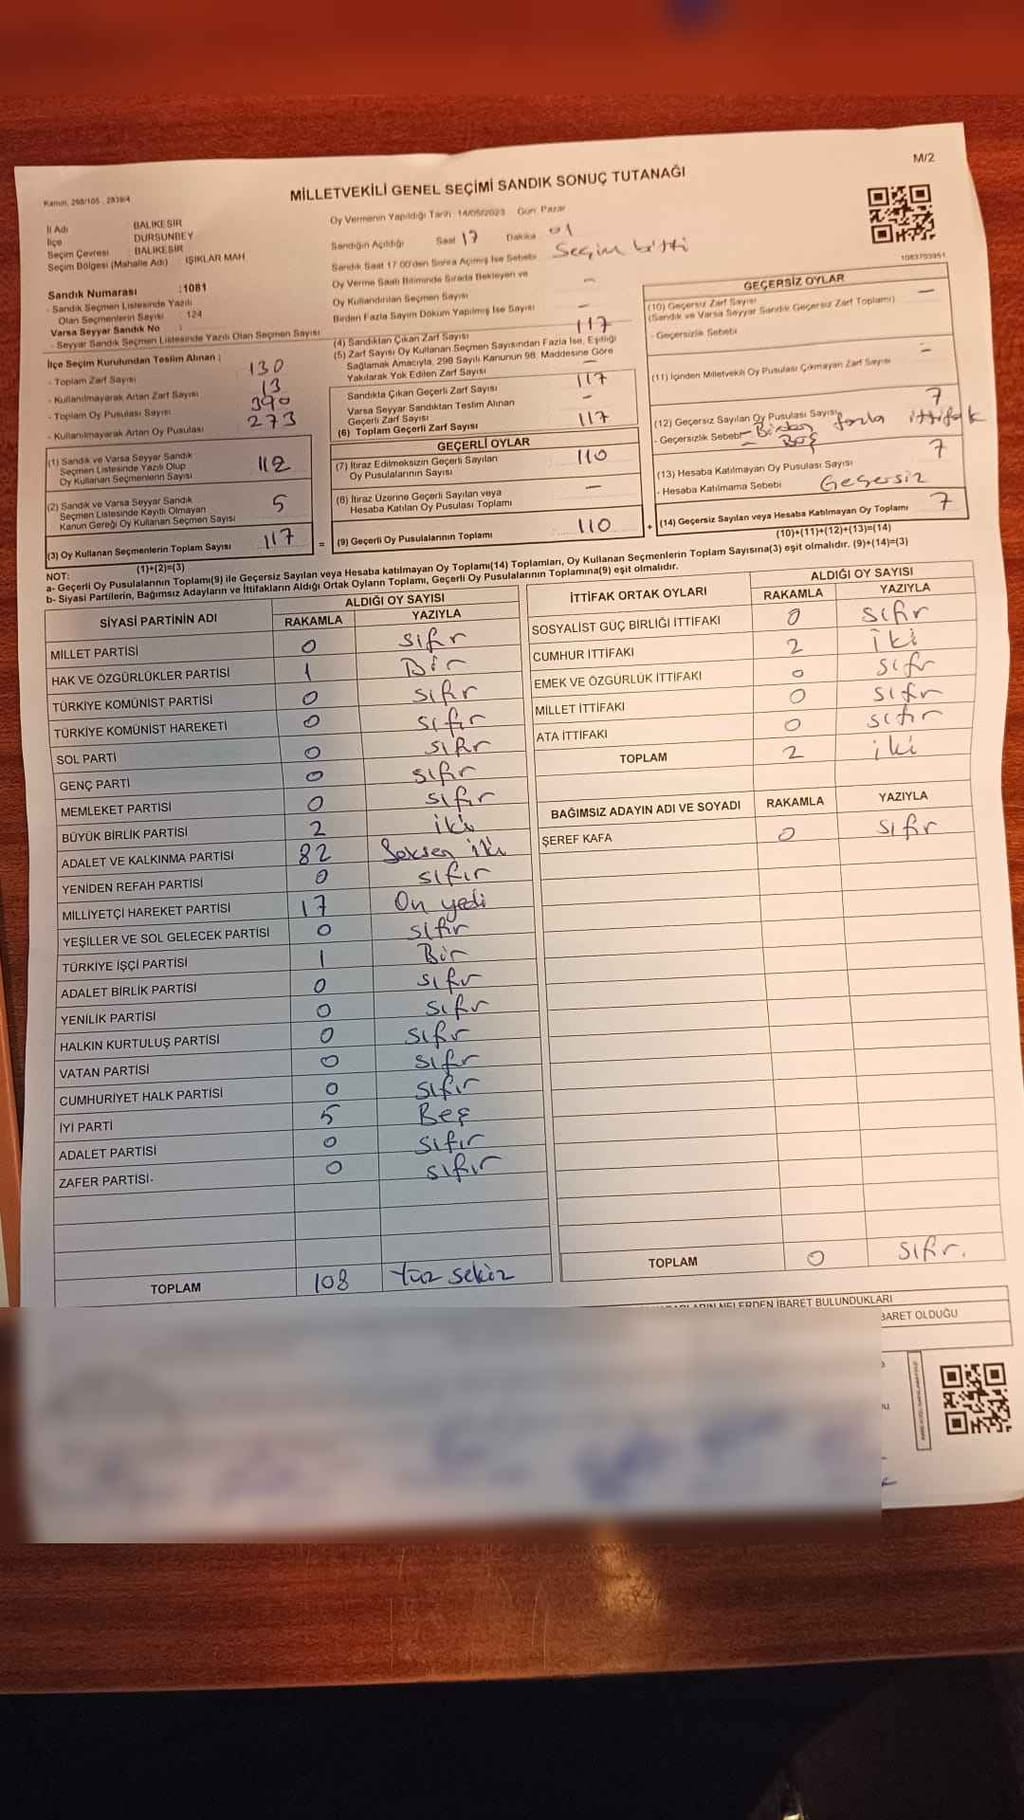 M/2
MİLLETVEKİLİ GENEL SEÇİMİ SANDIK SONUÇ TUTANAĞI
İl Adı BALIKESİR
İlçe DURSUNBEY
Seçim Çevresi BALIKESİR
Seçim Bölgesi (Mahalle Adı) IŞIKLAR MAH
Oy Vermenin Yapıldığı Tarih 14/05/2023 Gün Pazar
Sandığın Açıldığı Saat 17 Dakika 01
Sandık Saat 17:00'den Sonra Açılmış İse Sebebi Seçim bitti
Oy Verme Saati Bitiminde Sırada Bekleyen ve
Oy Kullandırılan Seçmen Sayısı -
Birden Fazla Sayım Döküm Yapılmış İse Sayısı -
1083703951
Sandık Numarası :1081
- Sandık Seçmen Listesinde Yazılı
Olan Seçmenlerin Sayısı 124
Varsa Seyyar Sandık No :
- Seyyar Sandık Seçmen Listesinde Yazılı Olan Seçmen Sayısı
İlçe Seçim Kurulundan Teslim Alınan ;
- Toplam Zarf Sayısı 130
- Kullanılmayarak Artan Zarf Sayısı 13
- Toplam Oy Pusulası Sayısı 390
- Kullanılmayarak Artan Oy Pusulası 273
(1) Sandık ve Varsa Seyyar Sandık
Seçmen Listesinde Yazılı Olup
Oy Kullanan Seçmenlerin Sayısı 112
(2) Sandık ve Varsa Seyyar Sandık
Seçmen Listesinde Kayıtlı Olmayan
Kanun Gereği Oy Kullanan Seçmen Sayısı 5
(3) Oy Kullanan Seçmenlerin Toplam Sayısı 117
(1)+(2)=(3)
(4) Sandıktan Çıkan Zarf Sayısı 117
(5) Zarf Sayısı Oy Kullanan Seçmen Sayısından Fazla İse, Eşitliği
Sağlamak Amacıyla, 298 Sayılı Kanunun 98. Maddesine Göre
Yakılarak Yok Edilen Zarf Sayısı -
Sandıkta Çıkan Geçerli Zarf Sayısı 117
Varsa Seyyar Sandıktan Teslim Alınan
Geçerli Zarf Sayısı -
(6) Toplam Geçerli Zarf Sayısı 117
GEÇERLİ OYLAR
(7) İtiraz Edilmeksizin Geçerli Sayılan
Oy Pusulalarının Sayısı 110
(8) İtiraz Üzerine Geçerli Sayılan veya
Hesaba Katılan Oy Pusulası Toplamı -
= (9) Geçerli Oy Pusulalarının Toplamı 110
GEÇERSİZ OYLAR
(10) Geçersiz Zarf Sayısı -
(Sandık ve Varsa Seyyar Sandık Geçersiz Zarf Toplamı)
- Geçersizlik Sebebi
(11) İçinden Milletvekili Oy Pusulası Çıkmayan Zarf Sayısı -
(12) Geçersiz Sayılan Oy Pusulası Sayısı 7
- Geçersizlik Sebebi - Birden fazla ittifak
- Boş
(13) Hesaba Katılmayan Oy Pusulası Sayısı 7
- Hesaba Katılmama Sebebi Geçersiz
+ (14) Geçersiz Sayılan veya Hesaba Katılmayan Oy Toplamı 7
(10)+(11)+(12)+(13)=(14)
NOT:
a- Geçerli Oy Pusulalarının Toplamı(9) ile Geçersiz Sayılan veya Hesaba katılmayan Oy Toplamı(14) Toplamları, Oy Kullanan Seçmenlerin Toplam Sayısına(3) eşit olmalıdır. (9)+(14)=(3)
b- Siyasi Partilerin, Bağımsız Adayların ve İttifakların Aldığı Ortak Oyların Toplamı, Geçerli Oy Pusulalarının Toplamına(9) eşit olmalıdır.
SİYASİ PARTİNİN ADI ALDIĞI OY SAYISI
RAKAMLA YAZIYLA
MİLLET PARTİSİ 0 sıfır
HAK VE ÖZGÜRLÜKLER PARTİSİ 1 Bir
TÜRKİYE KOMÜNİST PARTİSİ 0 sıfır
TÜRKİYE KOMÜNİST HAREKETİ 0 sıfır
SOL PARTİ 0 sıfır
GENÇ PARTİ 0 sıfır
MEMLEKET PARTİSİ 0 sıfır
BÜYÜK BİRLİK PARTİSİ 2 iki
ADALET VE KALKINMA PARTİSİ 82 Seksen iki
YENİDEN REFAH PARTİSİ 0 sıfır
MİLLİYETÇİ HAREKET PARTİSİ 17 On yedi
YEŞİLLER VE SOL GELECEK PARTİSİ 0 sıfır
TÜRKİYE İŞÇİ PARTİSİ 1 Bir
ADALET BİRLİK PARTİSİ 0 sıfır
YENİLİK PARTİSİ 0 sıfır
HALKIN KURTULUŞ PARTİSİ 0 sıfır
VATAN PARTİSİ 0 sıfır
CUMHURİYET HALK PARTİSİ 0 sıfır
İYİ PARTİ 5 Beş
ADALET PARTİSİ 0 sıfır
ZAFER PARTİSİ 0 sıfır
TOPLAM 108 Yüz sekiz
İTTİFAK ORTAK OYLARI ALDIĞI OY SAYISI
RAKAMLA YAZIYLA
SOSYALİST GÜÇ BİRLİĞİ İTTİFAKI 0 sıfır
CUMHUR İTTİFAKI 2 iki
EMEK VE ÖZGÜRLÜK İTTİFAKI 0 sıfır
MİLLET İTTİFAKI 0 sıfır
ATA İTTİFAKI 0 sıfır
TOPLAM 2 iki
BAĞIMSIZ ADAYIN ADI VE SOYADI RAKAMLA YAZIYLA
ŞEREF KAFA 0 sıfır
TOPLAM 0 sıfır.
NELERDEN İBARET BULUNDUKLARI
BARET OLDUĞU